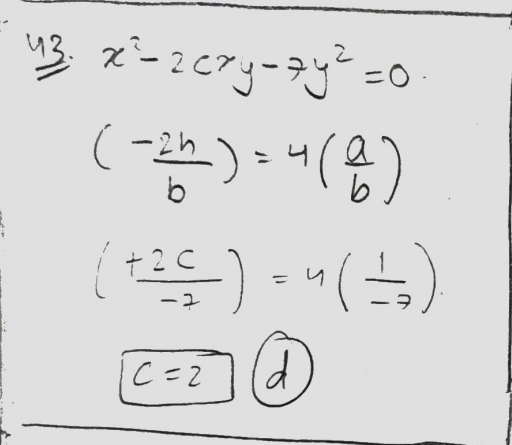 43. x² - 2cxy - 7y² = 0.
(-2h/b) = 4(a/b)
(+2c/-7) = 4(1/-7).
c = 2 (d)